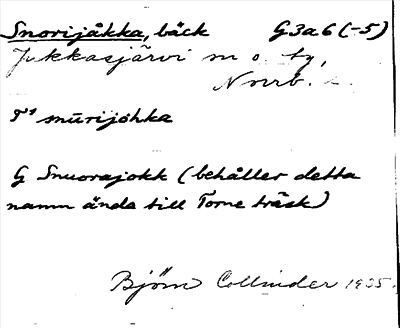 Snorijåkka, bäck G3a6(-5)
Jukkasjärvi sn o. tg,
Norrb. l.
T¹ snūrijohka
G Snuorajokk (behåller detta
namn ända till Torne träsk)
Björn Collinder 1935.